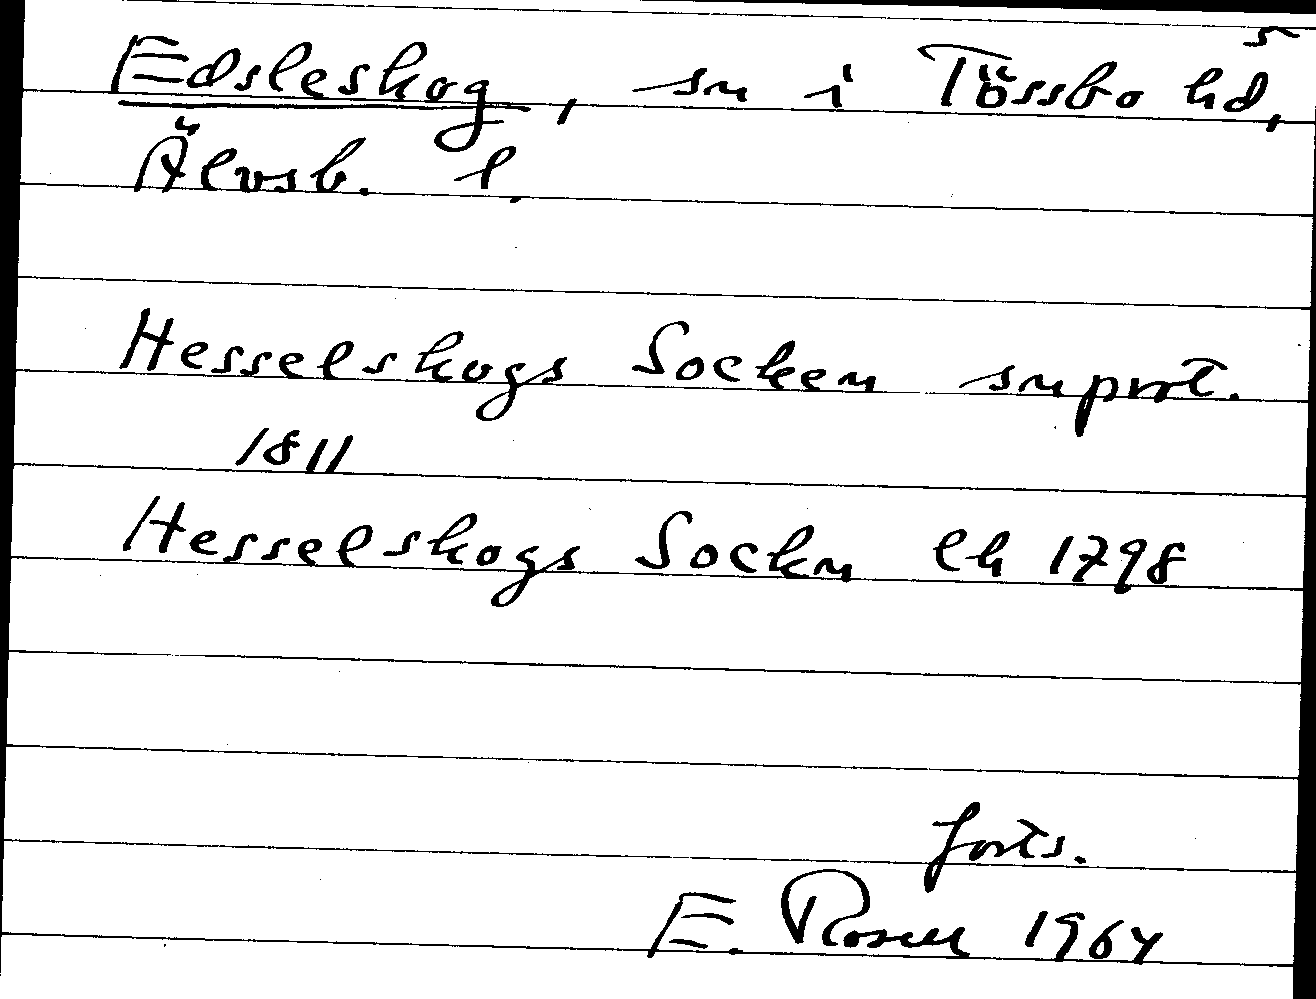 5
Edsleskog, sn i Tössbo hd,
Älvsb. l.
Hesselskogs Socken snprot.
1811
Hesselskogs Sockn Eh 1798
forts.
E. Rosell 1964